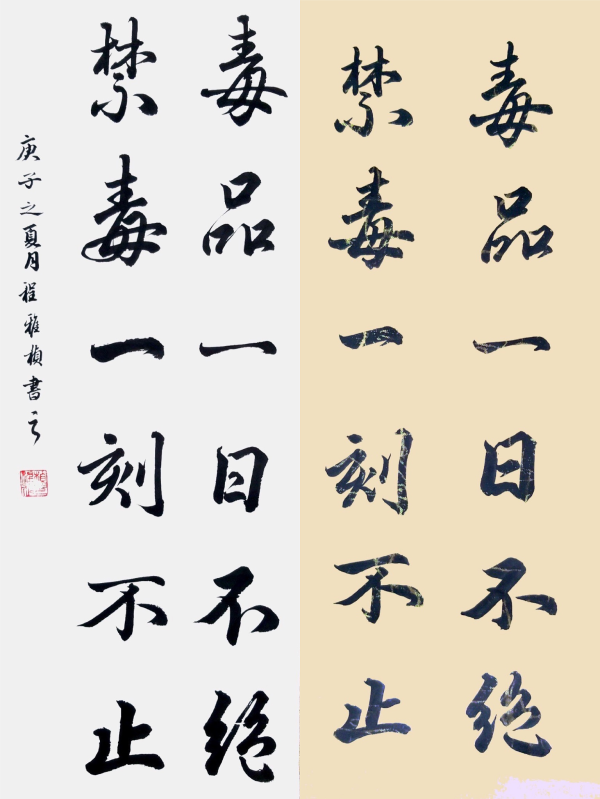 毒品一日不绝
禁毒一刻不止
庚子之夏月程雅桢书之
毒品一日不绝
禁毒一刻不止